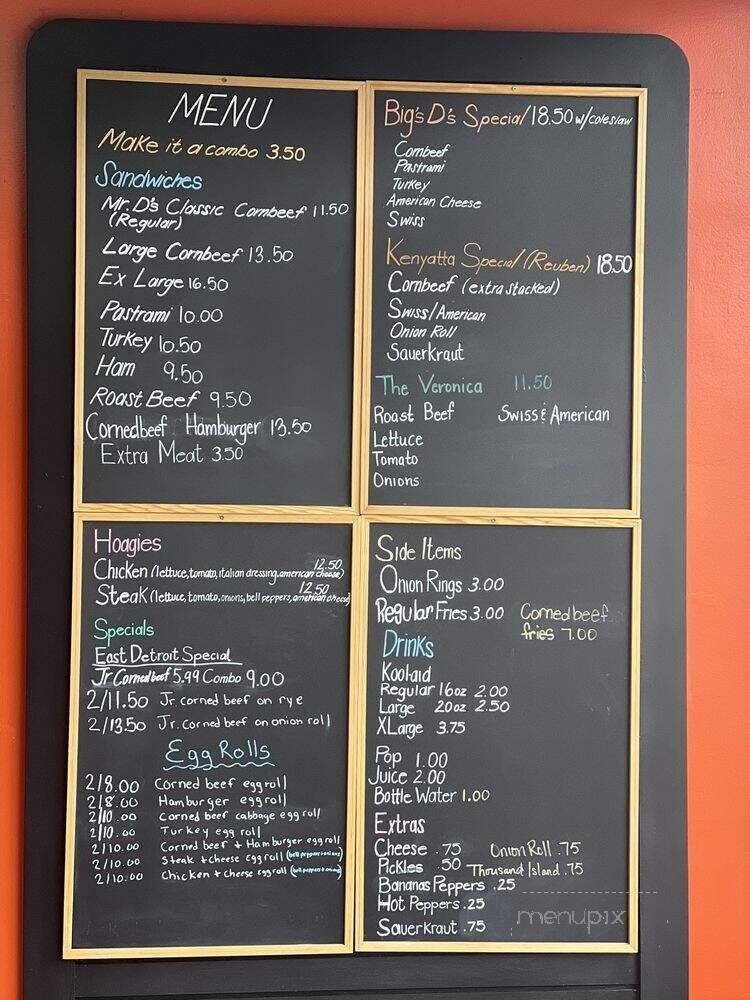 MENU
Make it a combo 3.50
Sandwiches
Mr. D's Classic Cornbeef 11.50
(Regular)
Large Cornbeef 13.50
Ex Large 16.50
Pastrami 10.00
Turkey 10.50
Ham 9.50
Roast Beef 9.50
Cornedbeef Hamburger 13.50
Extra Meat 3.50
Big's D's Special 18.50 w/coleslaw
Cornbeef
Pastrami
Turkey
American Cheese
Swiss
Kenyatta Special (Reuben) 18.50
Cornbeef (extra stacked)
Swiss/American
Onion Roll
Sauerkraut
The Veronica 11.50
Roast Beef Swiss & American
Lettuce
Tomato
Onions
Hoagies
Chicken (lettuce, tomato, italian dressing, american cheese) 12.50
Steak (lettuce, tomato, onions, bell peppers, american cheese) 12.50
Specials
East Detroit Special
Jr Cornedbeef 5.99 Combo 9.00
2/11.50 Jr. corned beef on rye
2/13.50 Jr. corned beef on onion roll
Egg Rolls
2/8.00 Corned beef egg roll
2/8.00 Hamburger egg roll
2/10.00 Corned beef cabbage egg roll
2/10.00 Turkey egg roll
2/10.00 Corned beef + Hamburger egg roll
2/10.00 Steak + cheese egg roll (bell peppers + onions)
2/10.00 Chicken + cheese egg roll (bell peppers + onions)
Side Items
Onion Rings 3.00
Regular Fries 3.00 Corned beef
fries 7.00
Drinks
Koolaid
Regular 16oz 2.00
Large 20oz 2.50
XLarge 3.75
Pop 1.00
Juice 2.00
Bottle Water 1.00
Extras
Cheese .75 Onion Roll .75
Pickles .50 Thousand Island .75
Bananas Peppers .25
Hot Peppers .25
Sauerkraut .75
menupix